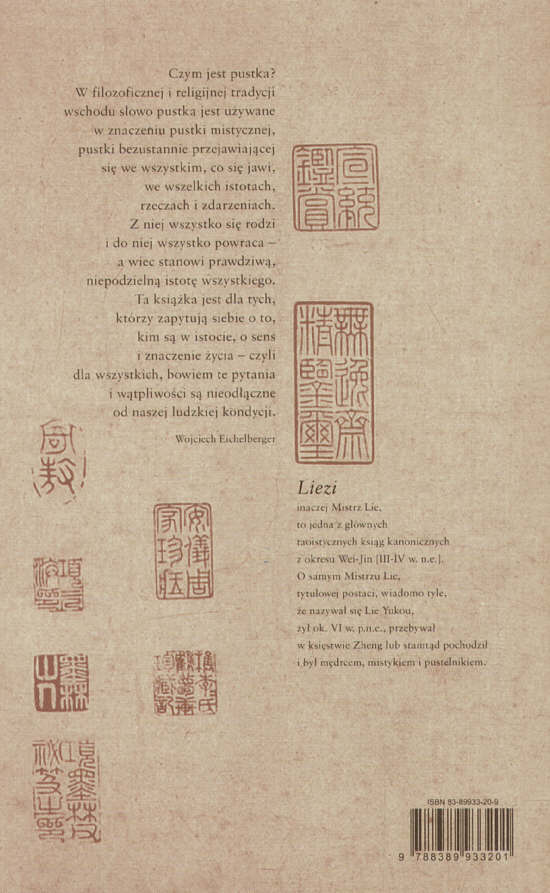 Czym jest pustka?
W filozoficznej i religijnej tradycji
wschodu słowo pustka jest używane
w znaczeniu pustki mistycznej,
pustki bezustannie przejawiającej
się we wszystkim, co się jawi,
we wszelkich istotach,
rzeczach i zdarzeniach.
Z niej wszystko się rodzi
i do niej wszystko powraca –
a wiec stanowi prawdziwą,
niepodzielną istotę wszystkiego.
Ta książka jest dla tych,
którzy zapytują siebie o to,
kim są w istocie, o sens
i znaczenie życia – czyli
dla wszystkich, bowiem te pytania
i wątpliwości są nieodłączne
od naszej ludzkiej kondycji.
Wojciech Eichelberger
宣統
鑑賞
無逸齋
精鑒璽
Liezi
inaczej Mistrz Lie,
to jedna z głównych
taoistycznych ksiąg kanonicznych
z okresu Wei-Jin [III-IV w. n.e.].
O samym Mistrzu Lie,
tytułowej postaci, wiadomo tyle,
że nazywał się Lie Yukou,
żył ok. VI w. p.n.e., przebywał
w księstwie Zheng lub stamtąd pochodził
i był mędrcem, mistykiem i pustelnikiem.
安儀周
家珍藏
ISBN 83-89933-20-9
9 788389 933201